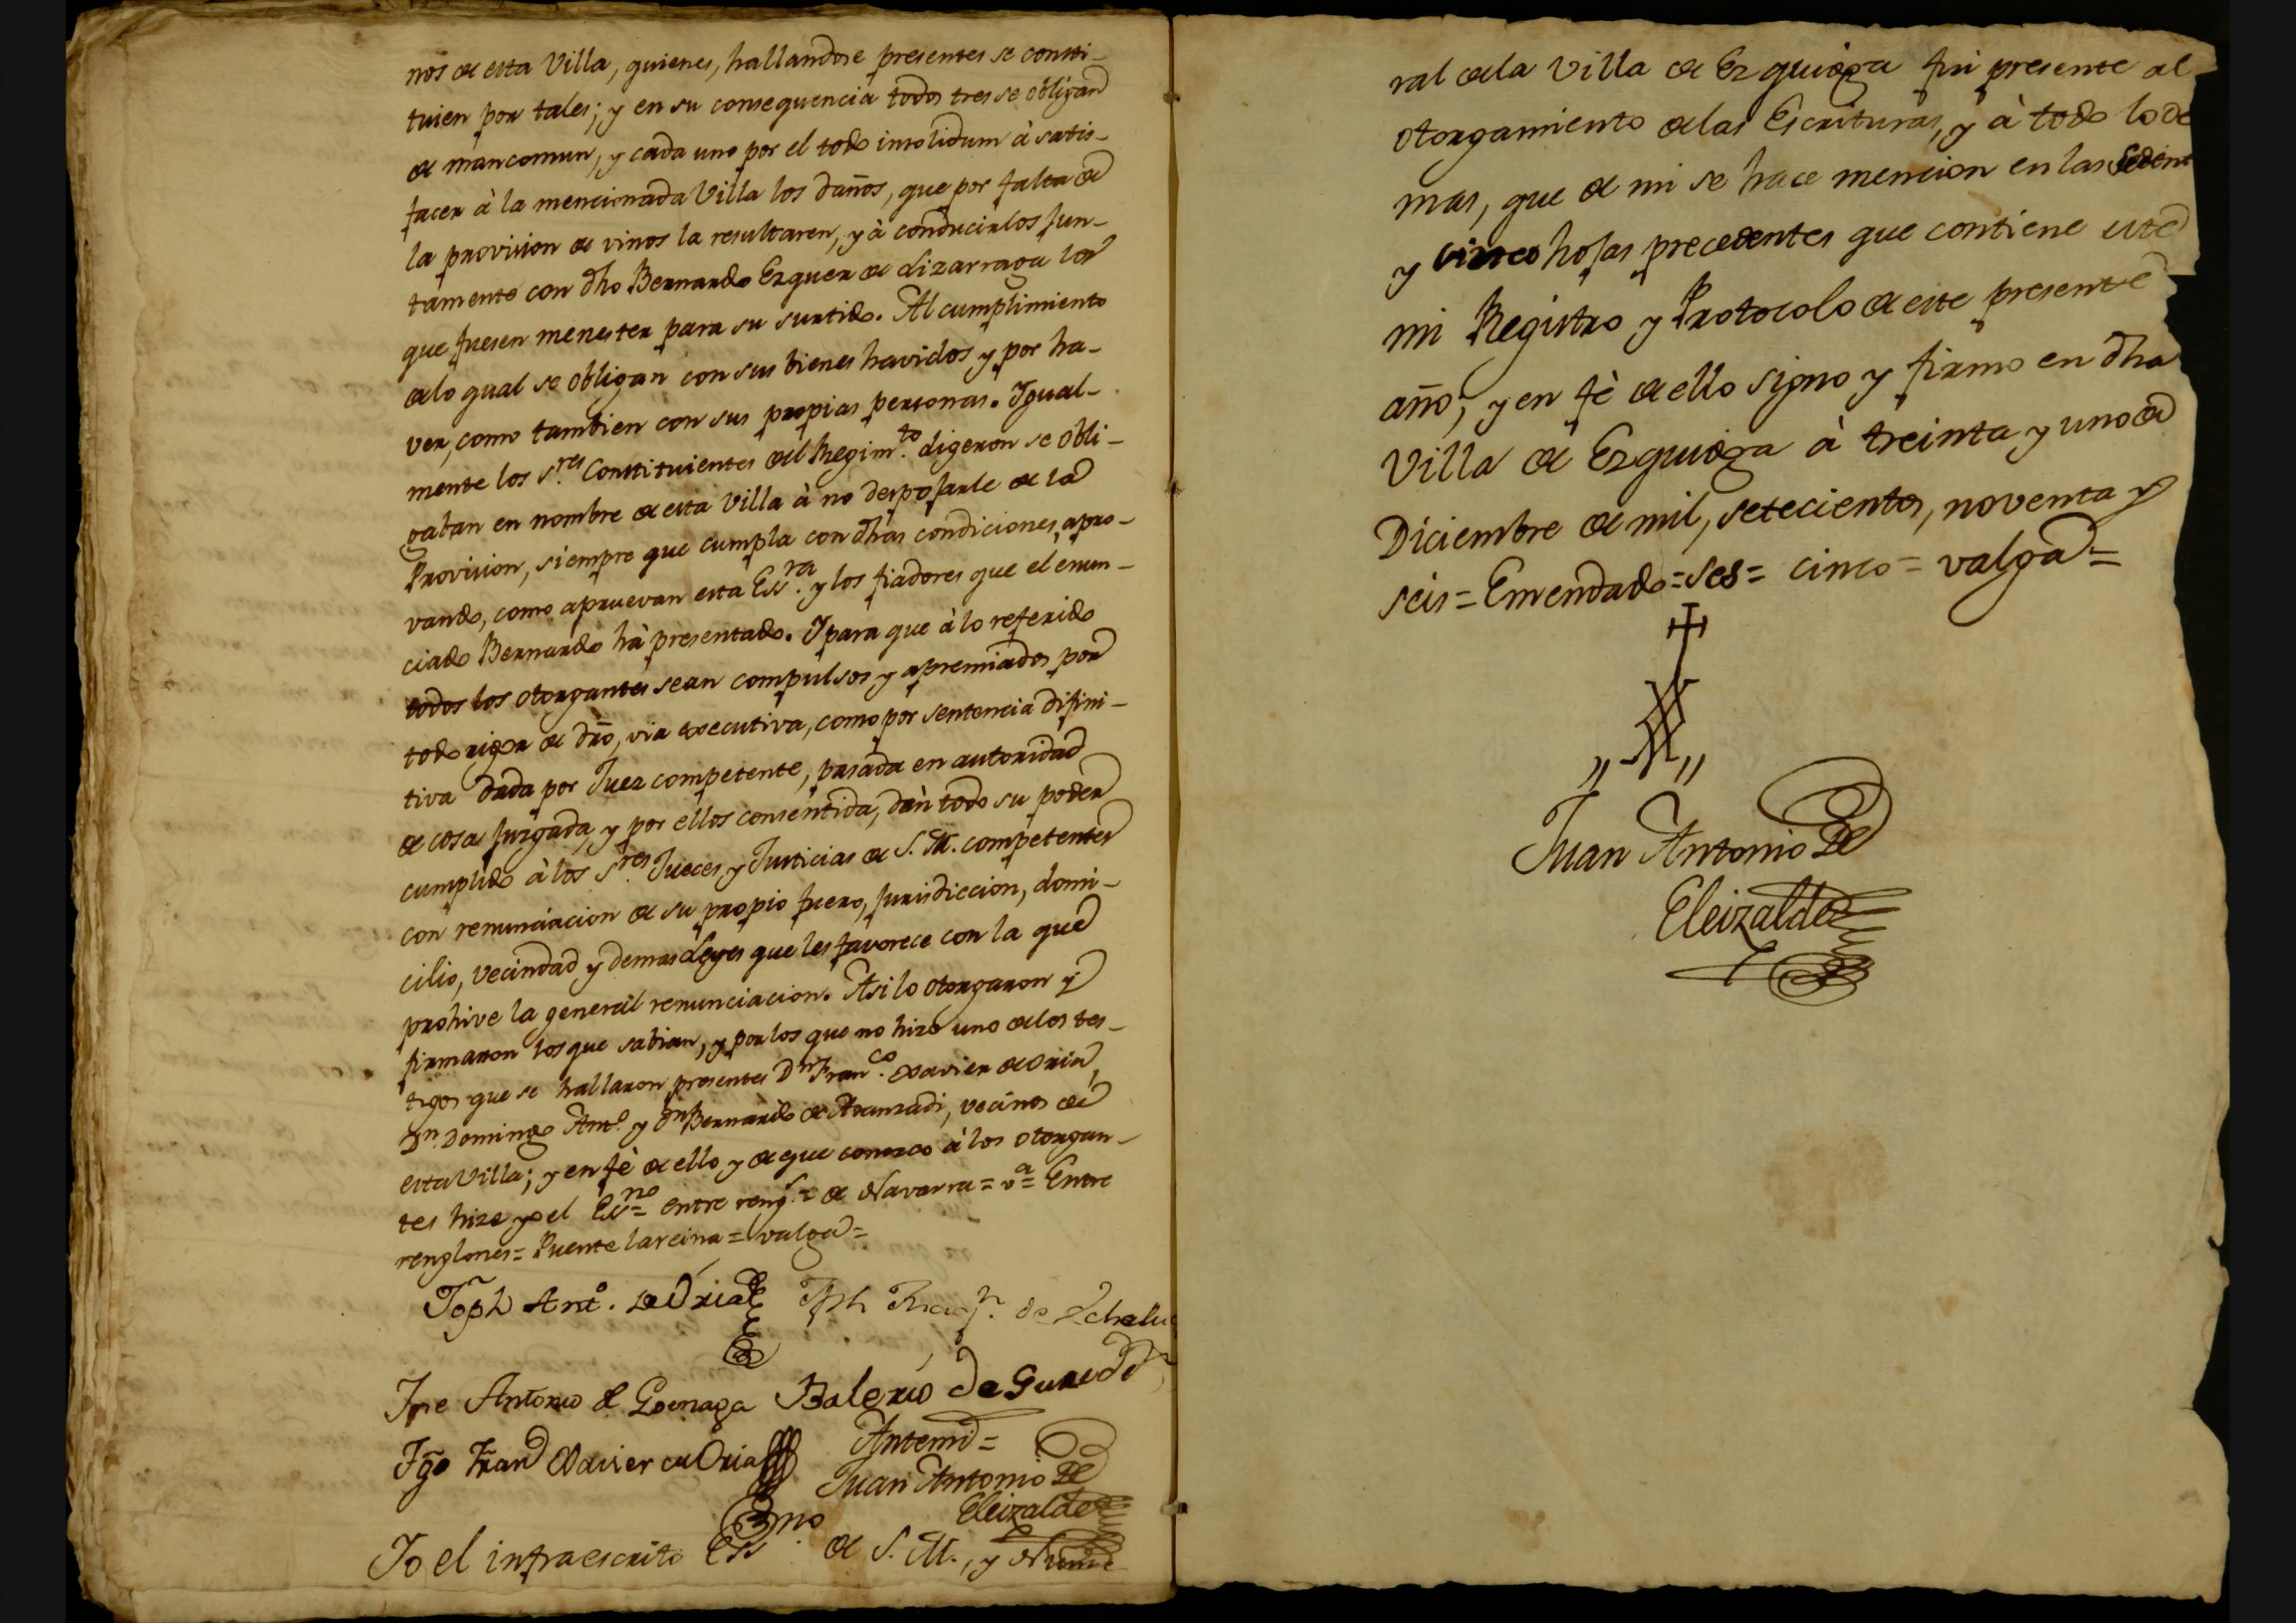 nos de esta Villa, quienes, hallandose presentes se consti-
tuien por tales; y en su consequencia todos tres se obligan
de mancomun, y cada uno por el todo insolidum à satis-
facer à la mencionada Villa los daños, que por falta de
la provision de vinos la resultaren, y à conducirlos jun-
tamente con dho Bernardo Ezquer de Lizarraga los
que fuesen menester para su surtido. Al cumplimiento
de lo qual se obligan con sus bienes havidos y por ha-
ver, como tambien con sus propias personas. Igual-
mente los S.res Constituientes del Regim.to digeron se obli-
gaban en nombre de esta Villa à no despojarle de la
Provision, siempre que cumpla con dhas condiciones, apro-
vando, como apruevan esta Ess.ra y los fiadores que el enun-
ciado Bernardo hà presentado. Y para que à lo referido
todos los otorgantes sean compulsos y apremiados por
todo rigor de dro, via executiva, como por sentencia difini-
tiva dada por Juez competente, pasada en autoridad
de cosa juzgada, y por ellos consentida, dan todo su poder
cumplido à los S.res Jueces y Justicias de S. M. competentes
con renunciacion de su propio fuero, jurisdiccion, domi-
cilio, vecindad y demas Leyes que les favorece con la que
prohive la general renunciacion. Asi lo otorgaron y
firmaron los que sabian, y por los que no hizo uno de los tes-
tigos que se hallaron presentes Dn Fran.co Xavier de Oria,
Dn. Domingo Ant.o y Dn Bernardo de Aranzadi, vecinos de
esta Villa; y en fè de ello y de que conozco à los otorgan-
tes hize yo el Ess.no = entre reng.s = de Navarra = v.a = Entre
renglones = Puente la reina = valga =
Joph Ant.o de Oria Jph de
Jph Antonio de Goenaga Balerio de
Tgo Fran Xavier de Oria Antemi =
Juan Antonio de
Eleizalde
Yo el infraescrito Ess.no de S. M., y Nume
ral de la Villa de Ezquioga fui presente al
otorgamiento de las Escrituras, y à todo lo de
mas, que de mi se hace mencion en las
y cinco hojas precedentes que contiene este
mi Registro y Protocolo de este presente
año; y en fè de ello signo y firmo en dha
Villa de Ezquioga à treinta y uno de
Diciembre de mil, setecientos, noventa y
seis = Emendado = ses = cinco = valga =
Juan Antonio de
Eleizalde